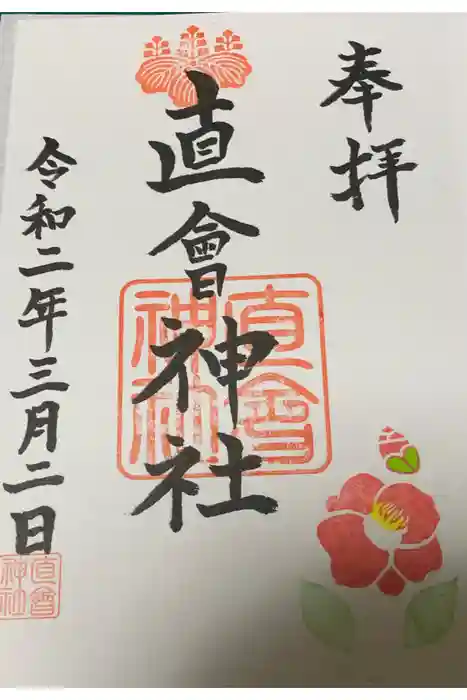 奉拝
直會神社
直會神社
令和二年三月二日
直會神社